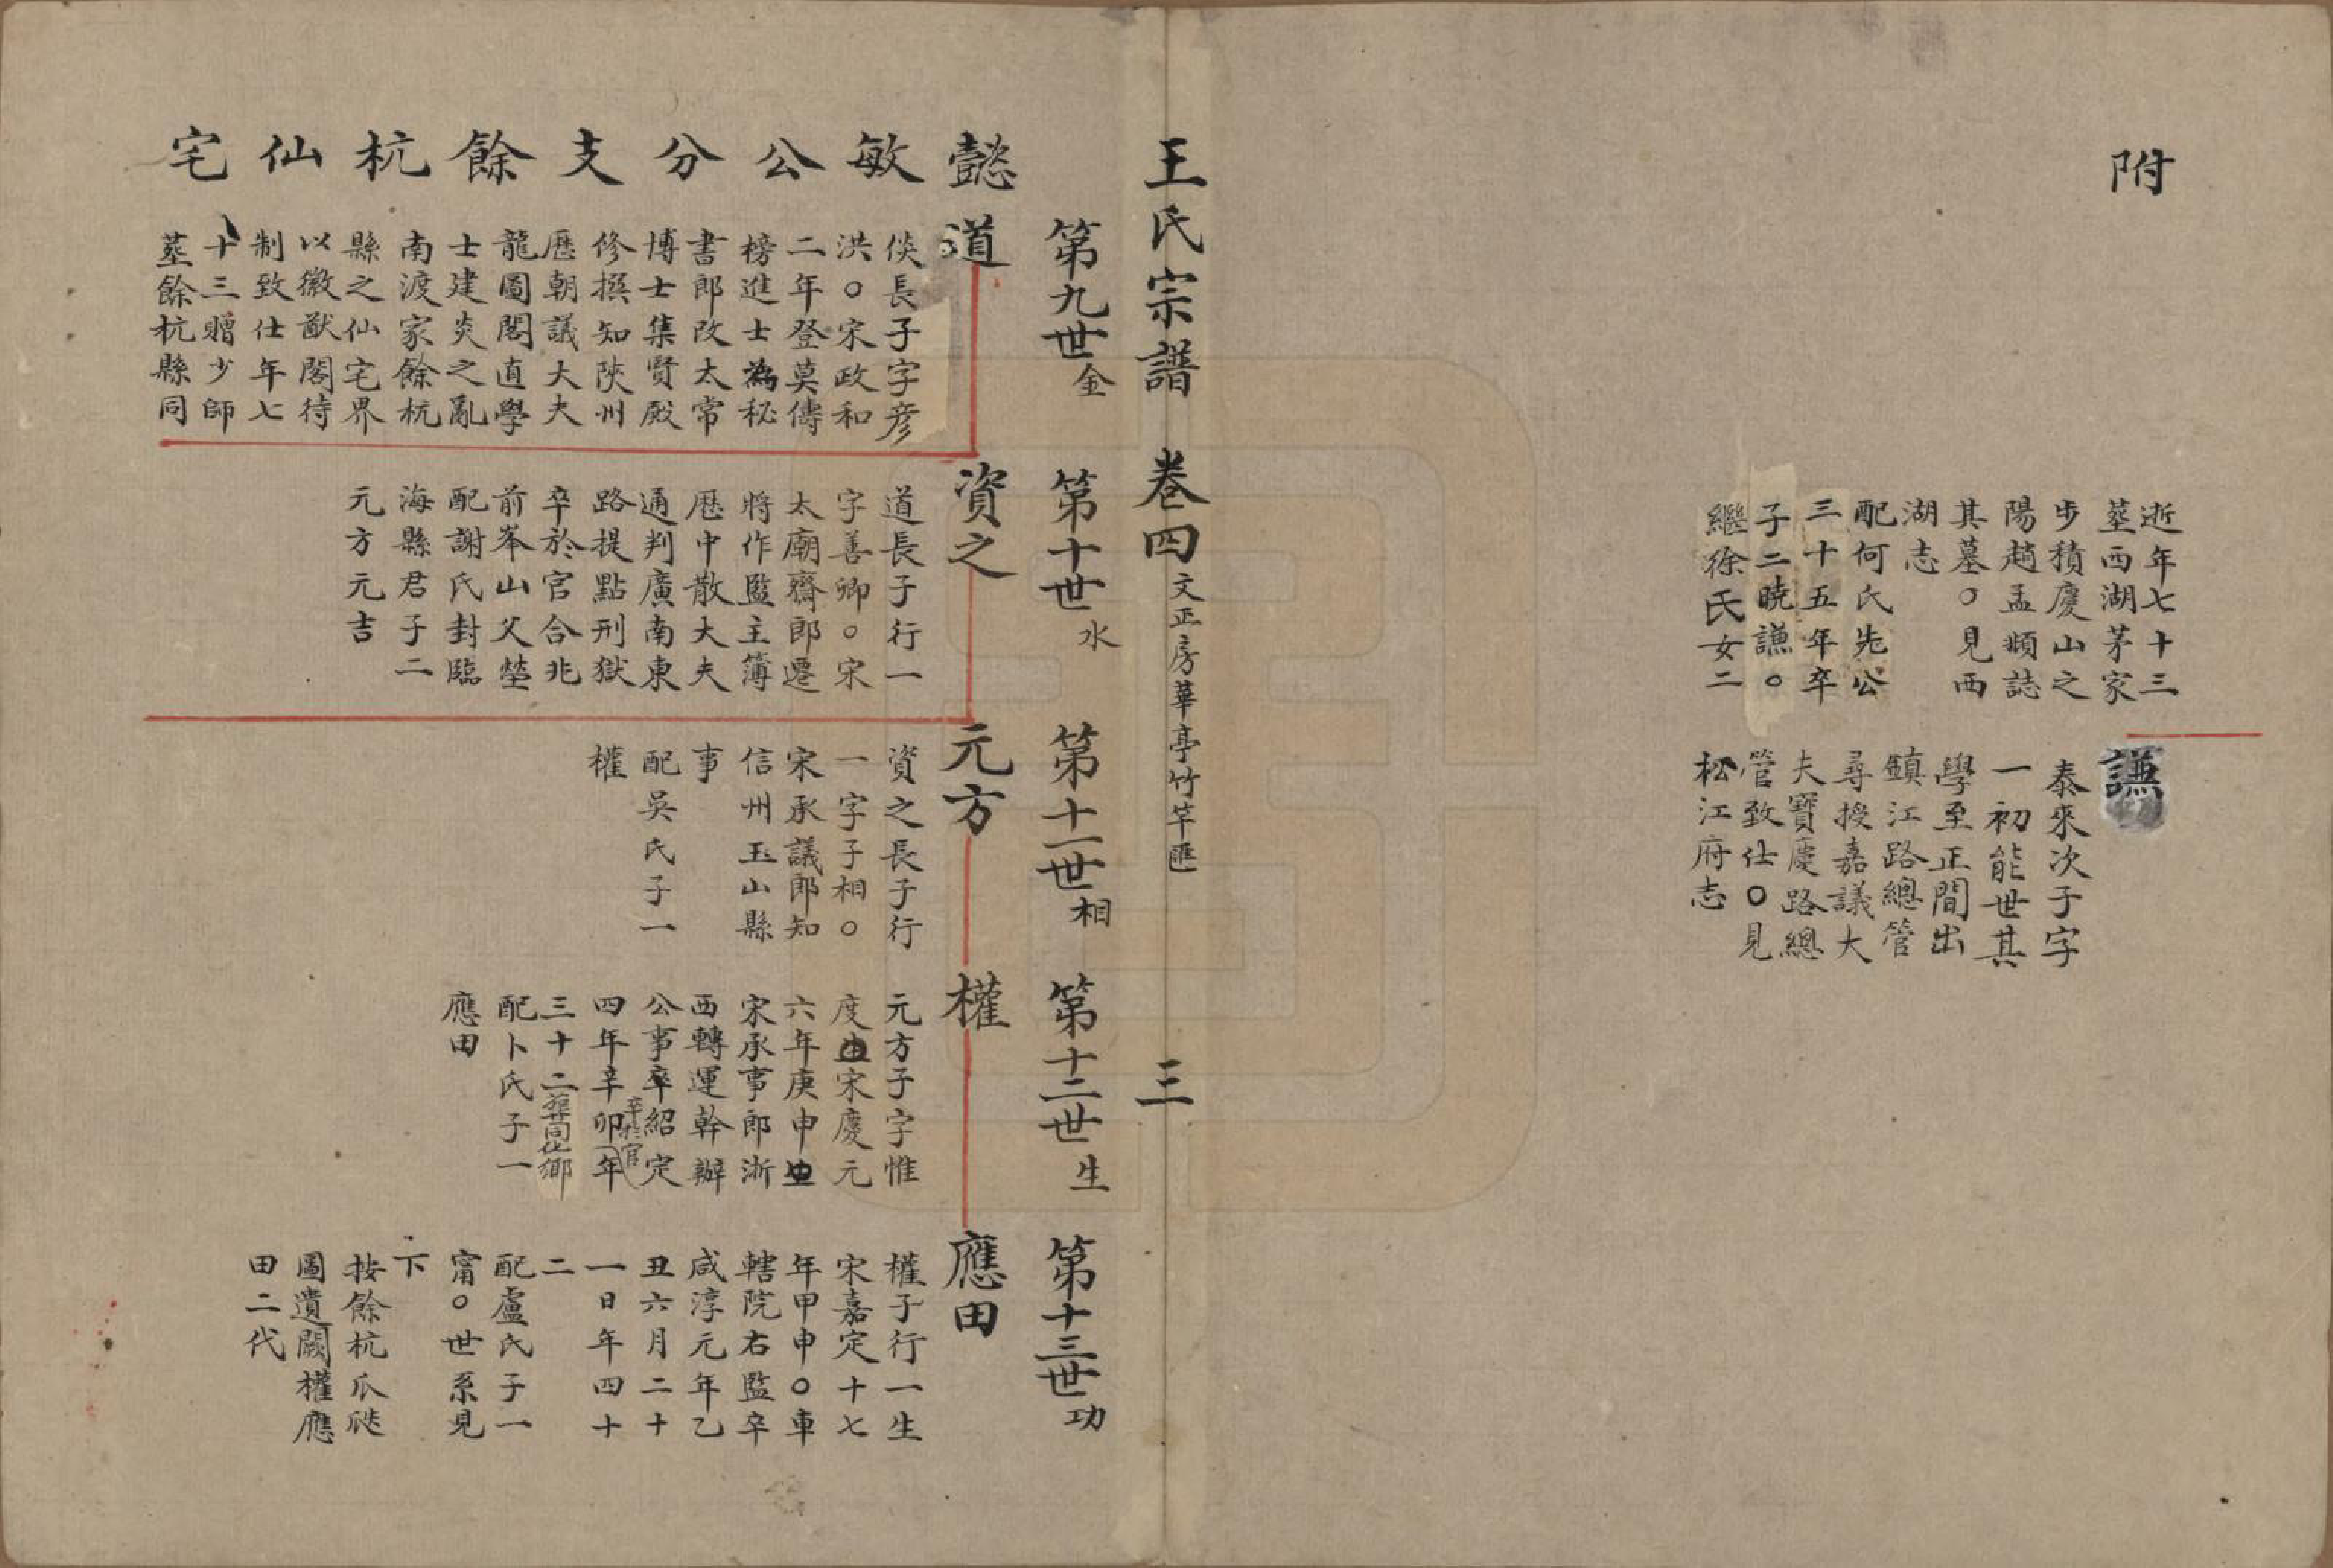 附
逝年七十三
葬西湖茅家
步積慶山之
陽趙孟頫誌
其墓○見西
湖志
配何氏先公
三十五年卒
子二曉謙○
繼徐氏女二
謙
泰來次子字
一初能世其
學至正間出
鎮江路總管
尋授嘉議大
夫寶慶路總
管致仕○見
松江府志
王氏宗譜 卷四 文正房華亭竹竿匯 三
第九世 金
第十世 水
第十一世 相
第十二世 生
第十三世 功
懿敏公分支餘杭仙宅
道
倓長子字彦
洪○宋政和
二年登莫儔
榜進士為秘
書郎改太常
博士集賢殿
修撰知陝州
歷朝議大夫
龍圖閣直學
士建炎之亂
南渡家餘杭
縣之仙宅界
以徽猷閣待
制致仕年七
十三贈少師
葬餘杭縣同
資之
道長子行一
字善卿○宋
太廟齋郎遷
將作監主簿
歷中散大夫
通判廣南東
路提點刑獄
卒於官合兆
前峯山父塋
配謝氏封臨
海縣君子二
元方元吉
元方
資之長子行
一字子相○
宋承議郎知
信州玉山縣
事
配吳氏子一
權
權
元方子字惟
度生宋慶元
六年庚申
宋承事郎浙
西轉運幹辦
公事卒紹定
四年辛卯年
卒於官
三十二葬同仕鄉
配卜氏子一
應田
應田
權子行一生
宋嘉定十七
年甲申○車
轄院右監卒
咸淳元年乙
丑六月二十
一日年四十
二
配盧氏子一
甯○世系見
下
按餘杭爪瓞
圖遺闕權應
田二代